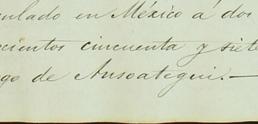 culado en México á dos
cientos cincuenta y siete
go de Ansoategui.—